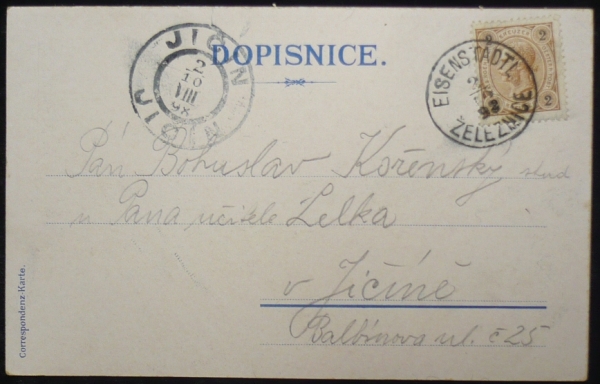 DOPISNICE.
JIČÍN
2
10
VIII
98
JIČÍN
EISENSTADTL
98
ŽELEZNICE
2
2
2
Pán Bohuslav Kořenský stud
u Pana učitele Lelka
v Jičíně
Balbínova ul. č 25
Correspondenz-Karte.